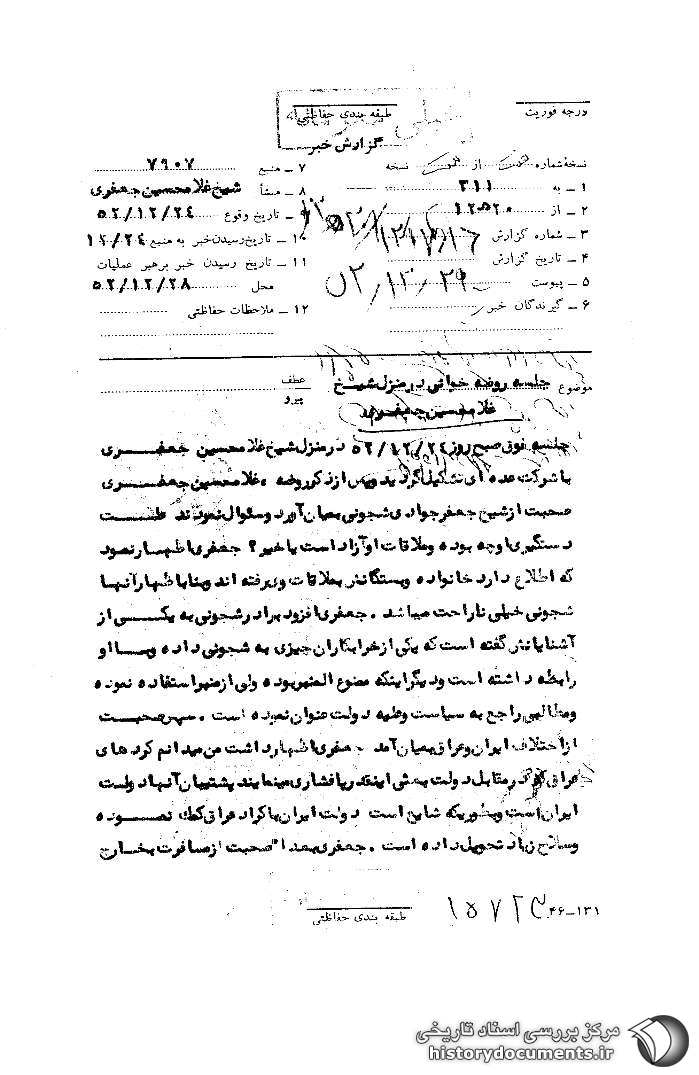 درجه فوریت
طبقه بندی حفاظتی
گزارش خبر
نسخه شماره از نسخه
۱ ـ به ۳۱۱
۲ ـ از ۱۲۵۲۰
۳ ـ شماره گزارش
۴ ـ تاریخ گزارش
۵ ـ پیوست
۶ ـ گیرندگان خبر
۷ ـ منبع ۷۹۰۷
۸ ـ منشأ شیخ غلامحسین جعفری
۹ ـ تاریخ وقوع ۵۲/۱۲/۲۴
۱۰ ـ تاریخ رسیدن خبر به منبع ۱۲/۲۴
۱۱ ـ تاریخ رسیدن خبر برهبر عملیات
محل ۵۲/۱۲/۲۸
۱۲ ـ ملاحظات حفاظتی
موضوع جلسه روضه خوانی در منزل شیخ
غلامحسین جعفری
عطف
پیرو
جلسه فوق صبح روز ۵۲/۱۲/۲۴ در منزل شیخ غلامحسین جعفری
با شرکت عده ای تشکیل گردید و پس از ذکر روضه ، غلامحسین جعفری
صحبت از شیخ جعفر جوادی شجونی بمیان آورد و سئوال نمودند علت
دستگیری او چه بوده و ملاقات او آزاد است یا خیر؟ جعفری اظهار نمود
که اطلاع دارد خانواده و بستگانش بملاقات وی رفته اند و بنا باظهار آنها
شجونی خیلی ناراحت میباشد . جعفری افزود برادر شجونی به یکی از
آشنایانش گفته است که یکی از خرابکاران چیزی به شجونی داده و با او
رابطه داشته است و دیگر اینکه ممنوع المنبر بوده ولی از منبر استفاده نموده
و مطالبی راجع به سیاست و علیه دولت عنوان نموده است . سپس صحبت
از اختلاف ایران و عراق بمیان آمد جعفری اظهار داشت من میدانم کردهای
عراق که در مقابل دولت بعثی اینقدر پافشاری مینمایند پشتیبان آنها دولت
ایران است و بطوریکه شایع است دولت ایران باکراد عراقی کمک نموده
و سلاح زیاد تحویل داده است . جعفری بعداً صحبت از مسافرت بخارج
طبقه بندی حفاظتی
۴۶-۱۳۱
مرکز بررسی اسناد تاریخی
historydocuments.ir